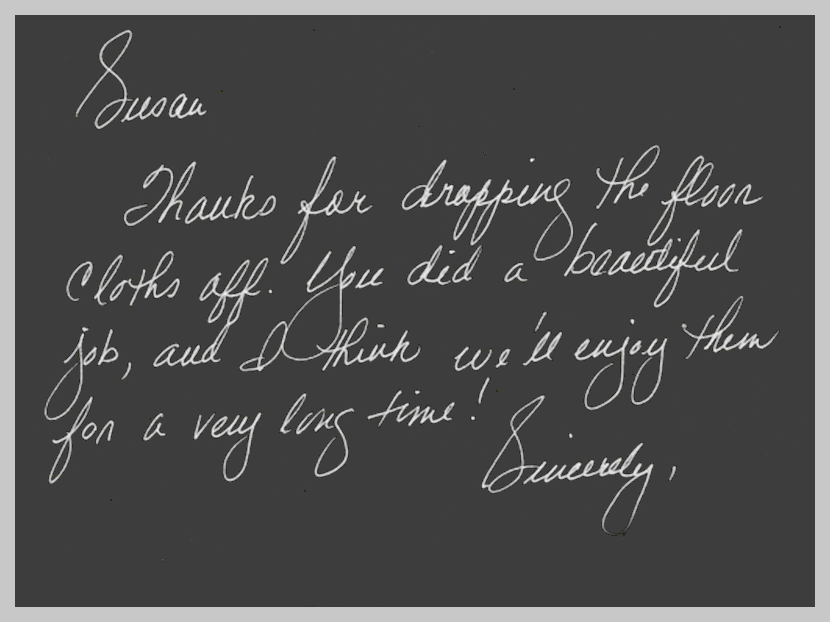 Susan
Thanks for dropping the floor
cloths off. You did a beautiful
job, and I think we'll enjoy them
for a very long time!
Sincerely,